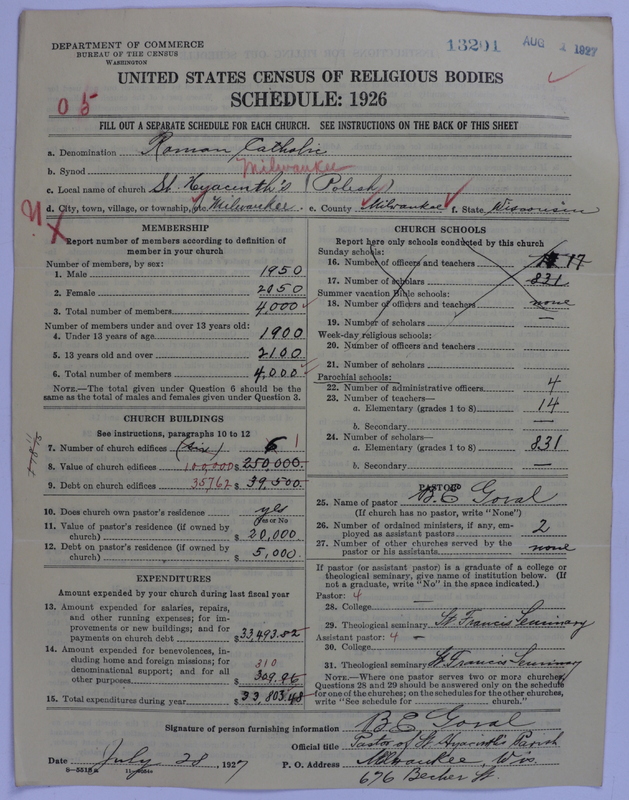 DEPARTMENT OF COMMERCE
BUREAU OF THE CENSUS
WASHINGTON
13201
AUG 1 1927
UNITED STATES CENSUS OF RELIGIOUS BODIES
SCHEDULE: 1926
05
FILL OUT A SEPARATE SCHEDULE FOR EACH CHURCH. SEE INSTRUCTIONS ON THE BACK OF THIS SHEET
a. Denomination Roman Catholic
b. Synod Milwaukee
c. Local name of church St. Hyacinth's (Polish)
d. City, town, village, or township, etc. Milwaukee. e. County Milwaukee f. State Wisconsin
MEMBERSHIP
Report number of members according to definition of
member in your church
Number of members, by sex:
1. Male 1950
2. Female 2050
3. Total number of members 4,000
Number of members under and over 13 years old:
4. Under 13 years of age 1900
5. 13 years old and over 2100
6. Total number of members 4,000
NOTE.—The total given under Question 6 should be the
same as the total of males and females given under Question 3.
CHURCH BUILDINGS
See instructions, paragraphs 10 to 12
7. Number of church edifices (six) 6 1
8. Value of church edifices 100,000 $ 250,000.
9. Debt on church edifices 35762 $ 39,500.
10. Does church own pastor's residence yes
Yes or No
11. Value of pastor's residence (if owned by
church) $ 20,000.
12. Debt on pastor's residence (if owned by
church) $ 5,000.
EXPENDITURES
Amount expended by your church during last fiscal year
13. Amount expended for salaries, repairs,
and other running expenses; for im-
provements or new buildings; and for
payments on church debt $ 33,493.52
14. Amount expended for benevolences, in-
cluding home and foreign missions; for
denominational support; and for all 310
other purposes $ 309.96
15. Total expenditures during year $ 33,803.48
CHURCH SCHOOLS
Report here only schools conducted by this church
Sunday schools:
16. Number of officers and teachers 17
17. Number of scholars 831
Summer vacation Bible schools:
18. Number of officers and teachers none
19. Number of scholars —
Week-day religious schools:
20. Number of officers and teachers
21. Number of scholars
Parochial schools:
22. Number of administrative officers 4
23. Number of teachers—
a. Elementary (grades 1 to 8) 14
b. Secondary —
24. Number of scholars—
a. Elementary (grades 1 to 8) 831
b. Secondary —
PASTOR
25. Name of pastor B.E. Goral
(If church has no pastor, write "None")
26. Number of ordained ministers, if any, em-
ployed as assistant pastors 2
27. Number of other churches served by the
pastor or his assistants none
If pastor (or assistant pastor) is a graduate of a college or
theological seminary, give name of institution below. (If
not a graduate, write "No" in the space indicated.)
Pastor: 4
28. College —
29. Theological seminary St. Francis Seminary
Assistant pastor: 4 —
30. College
31. Theological seminary St. Francis Seminary
NOTE.—Where one pastor serves two or more churches,
Questions 28 and 29 should be answered only on the schedule
for one of the churches; on the schedules for the other churches,
write "See schedule for church."
Signature of person furnishing information B.E. Goral
Official title Pastor of St. Hyacinth's Parish
Date July 28, 1927 P. O. Address Milwaukee, Wis.
676 Becher St.